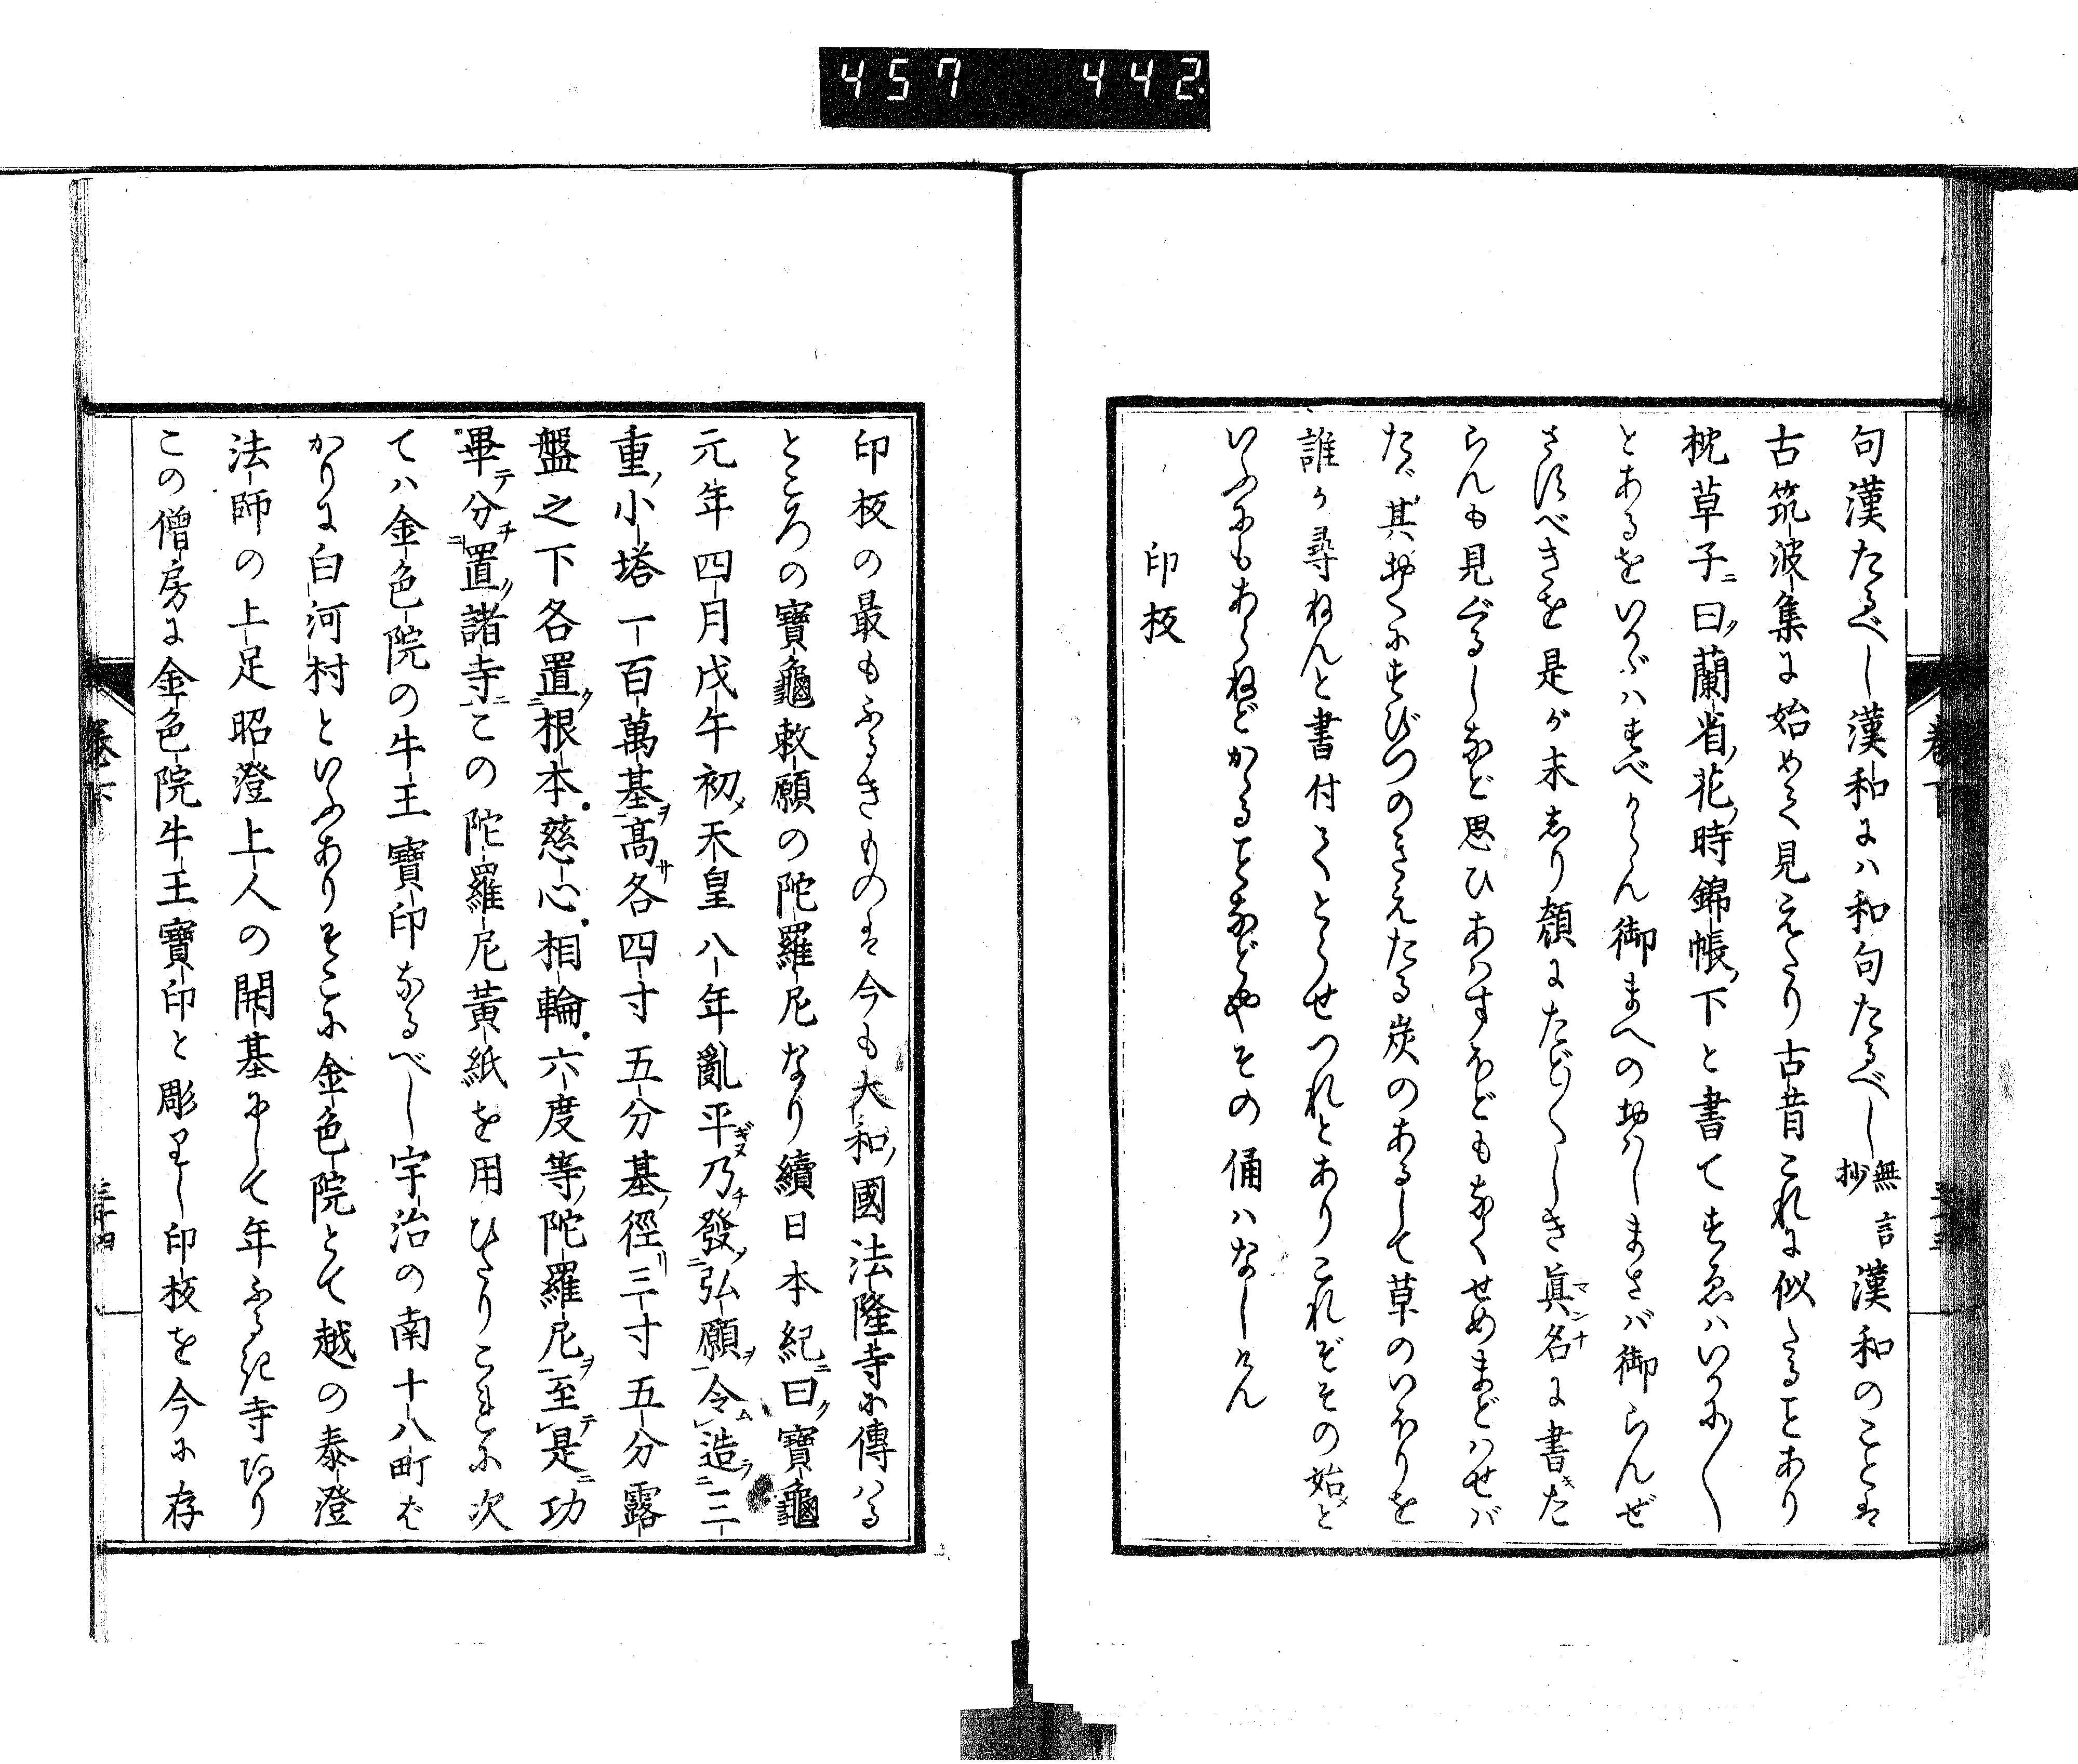 457 442
句漢たるべし漢和には和句たるべし無言抄漢和のことは
古筑波集に始めて見えたり古昔これに似たることあり
枕草子ニ曰ク蘭省ノ花ノ時錦帳ノ下と書てすゑはいかに〳〵
とあるをいかゞはすべからん御まへのおはしまさバ御らんぜ
さすべきを是が末しり顔にたど〳〵しき眞名マンナに書キた
らんも見ぐるしなど思ひあハすほどもなくせめまどハせバ
たゞ其おくにすびつのきえたる炭のあるして草のいほりを
誰か尋ねんと書付てとらせつれとありこれぞその始メと
いふにもあらねどかゝることなどやその俑ハなしけん
印板
巻下
印板の最もふるきものは今も大和ノ國法隆寺に傳ハる
ところの寶龜敕願の陀羅尼なり續日本紀ニ曰ク寶龜
元年四月戊午初メ天皇八年亂平ギヌ乃チ發シ弘願ヲ令ム造ラ三
重ノ小塔一百萬基ヲ高サ各四寸五分基ノ徑リ三寸五分露
盤之下各置ク根本慈心相輪六度等ノ陀羅尼ヲ至テ是ニ功
畢テ分チ置ク諸寺ニこの陀羅尼黃紙を用ひたりこれに次
てハ金色院の牛王寶印なるべし宇治の南十八町ば
かりに白河村といふありそこに金色院とて越の泰澄
法師の上足昭澄上人の開基にして年ふるき寺あり
この僧房に金色院牛王寶印と彫りし印板を今に存
巻下
三十四